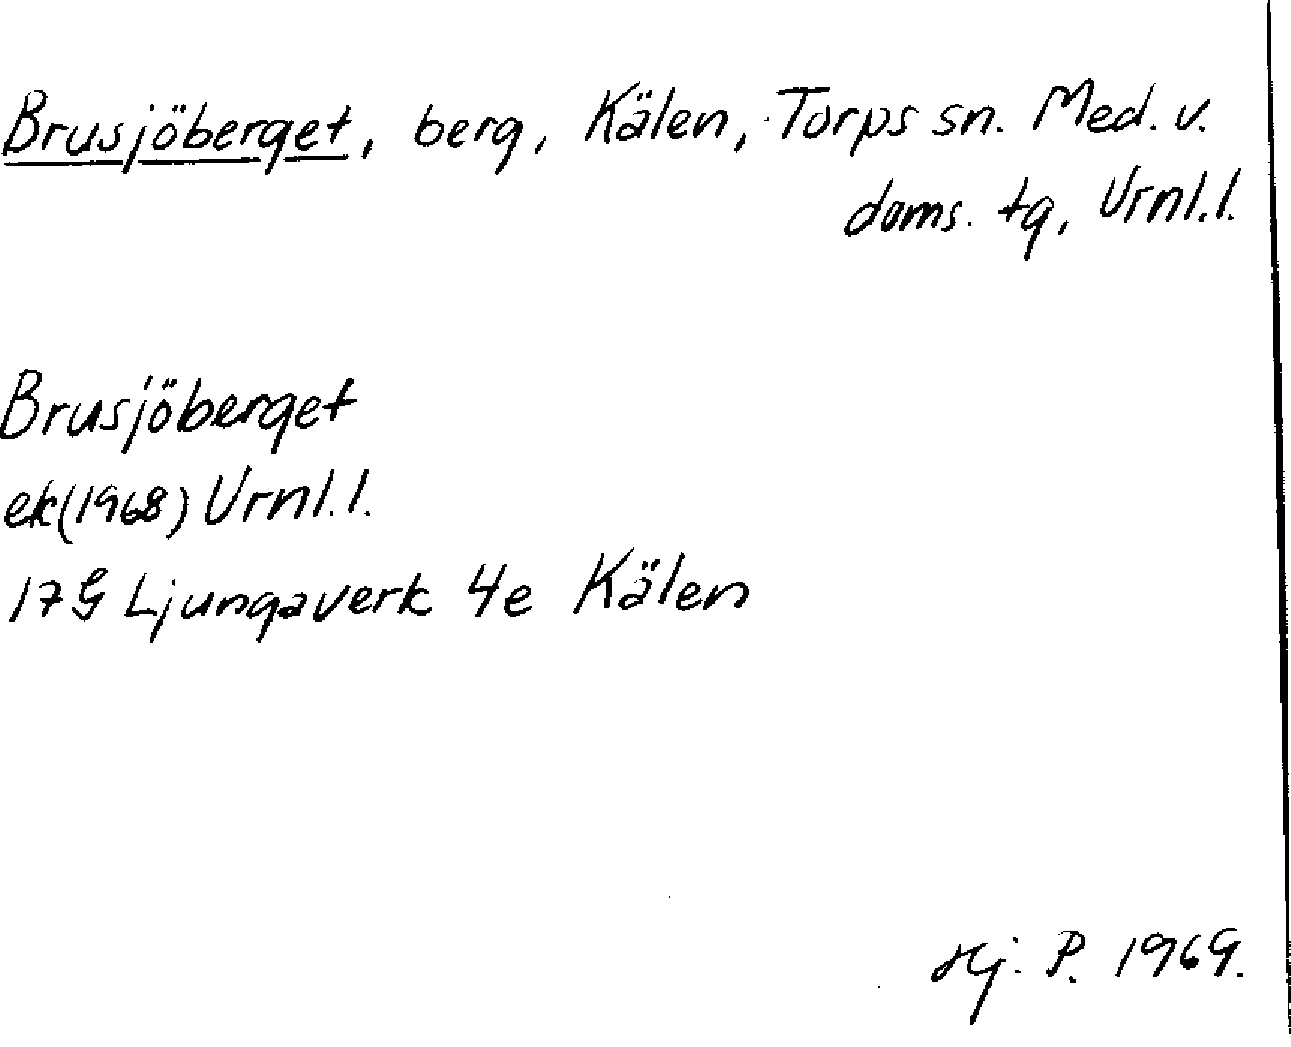 Brusjöberget, berg, Kälen, Torps sn. Med. v.
doms. tg, Vrnl.l.
Brusjöberget
ek(1968) Vrnl.l.
17G Ljungaverk 4e Kälen
Hj. P. 1969.